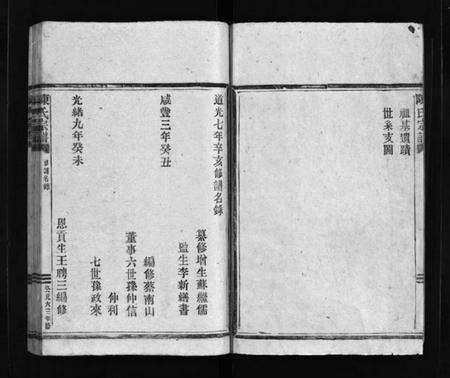 陳氏宗譜
祖墓遺蹟
世系支圖
道光七年辛亥修譜名錄
纂修增生蘇繼儒
監生李新繕書
咸豐三年癸丑
編修蔡南山
董事六世孫仲信
仲利
七世孫政來
光緒九年癸未
恩貢生王聘三編修
陳氏宗譜
修譜名錄